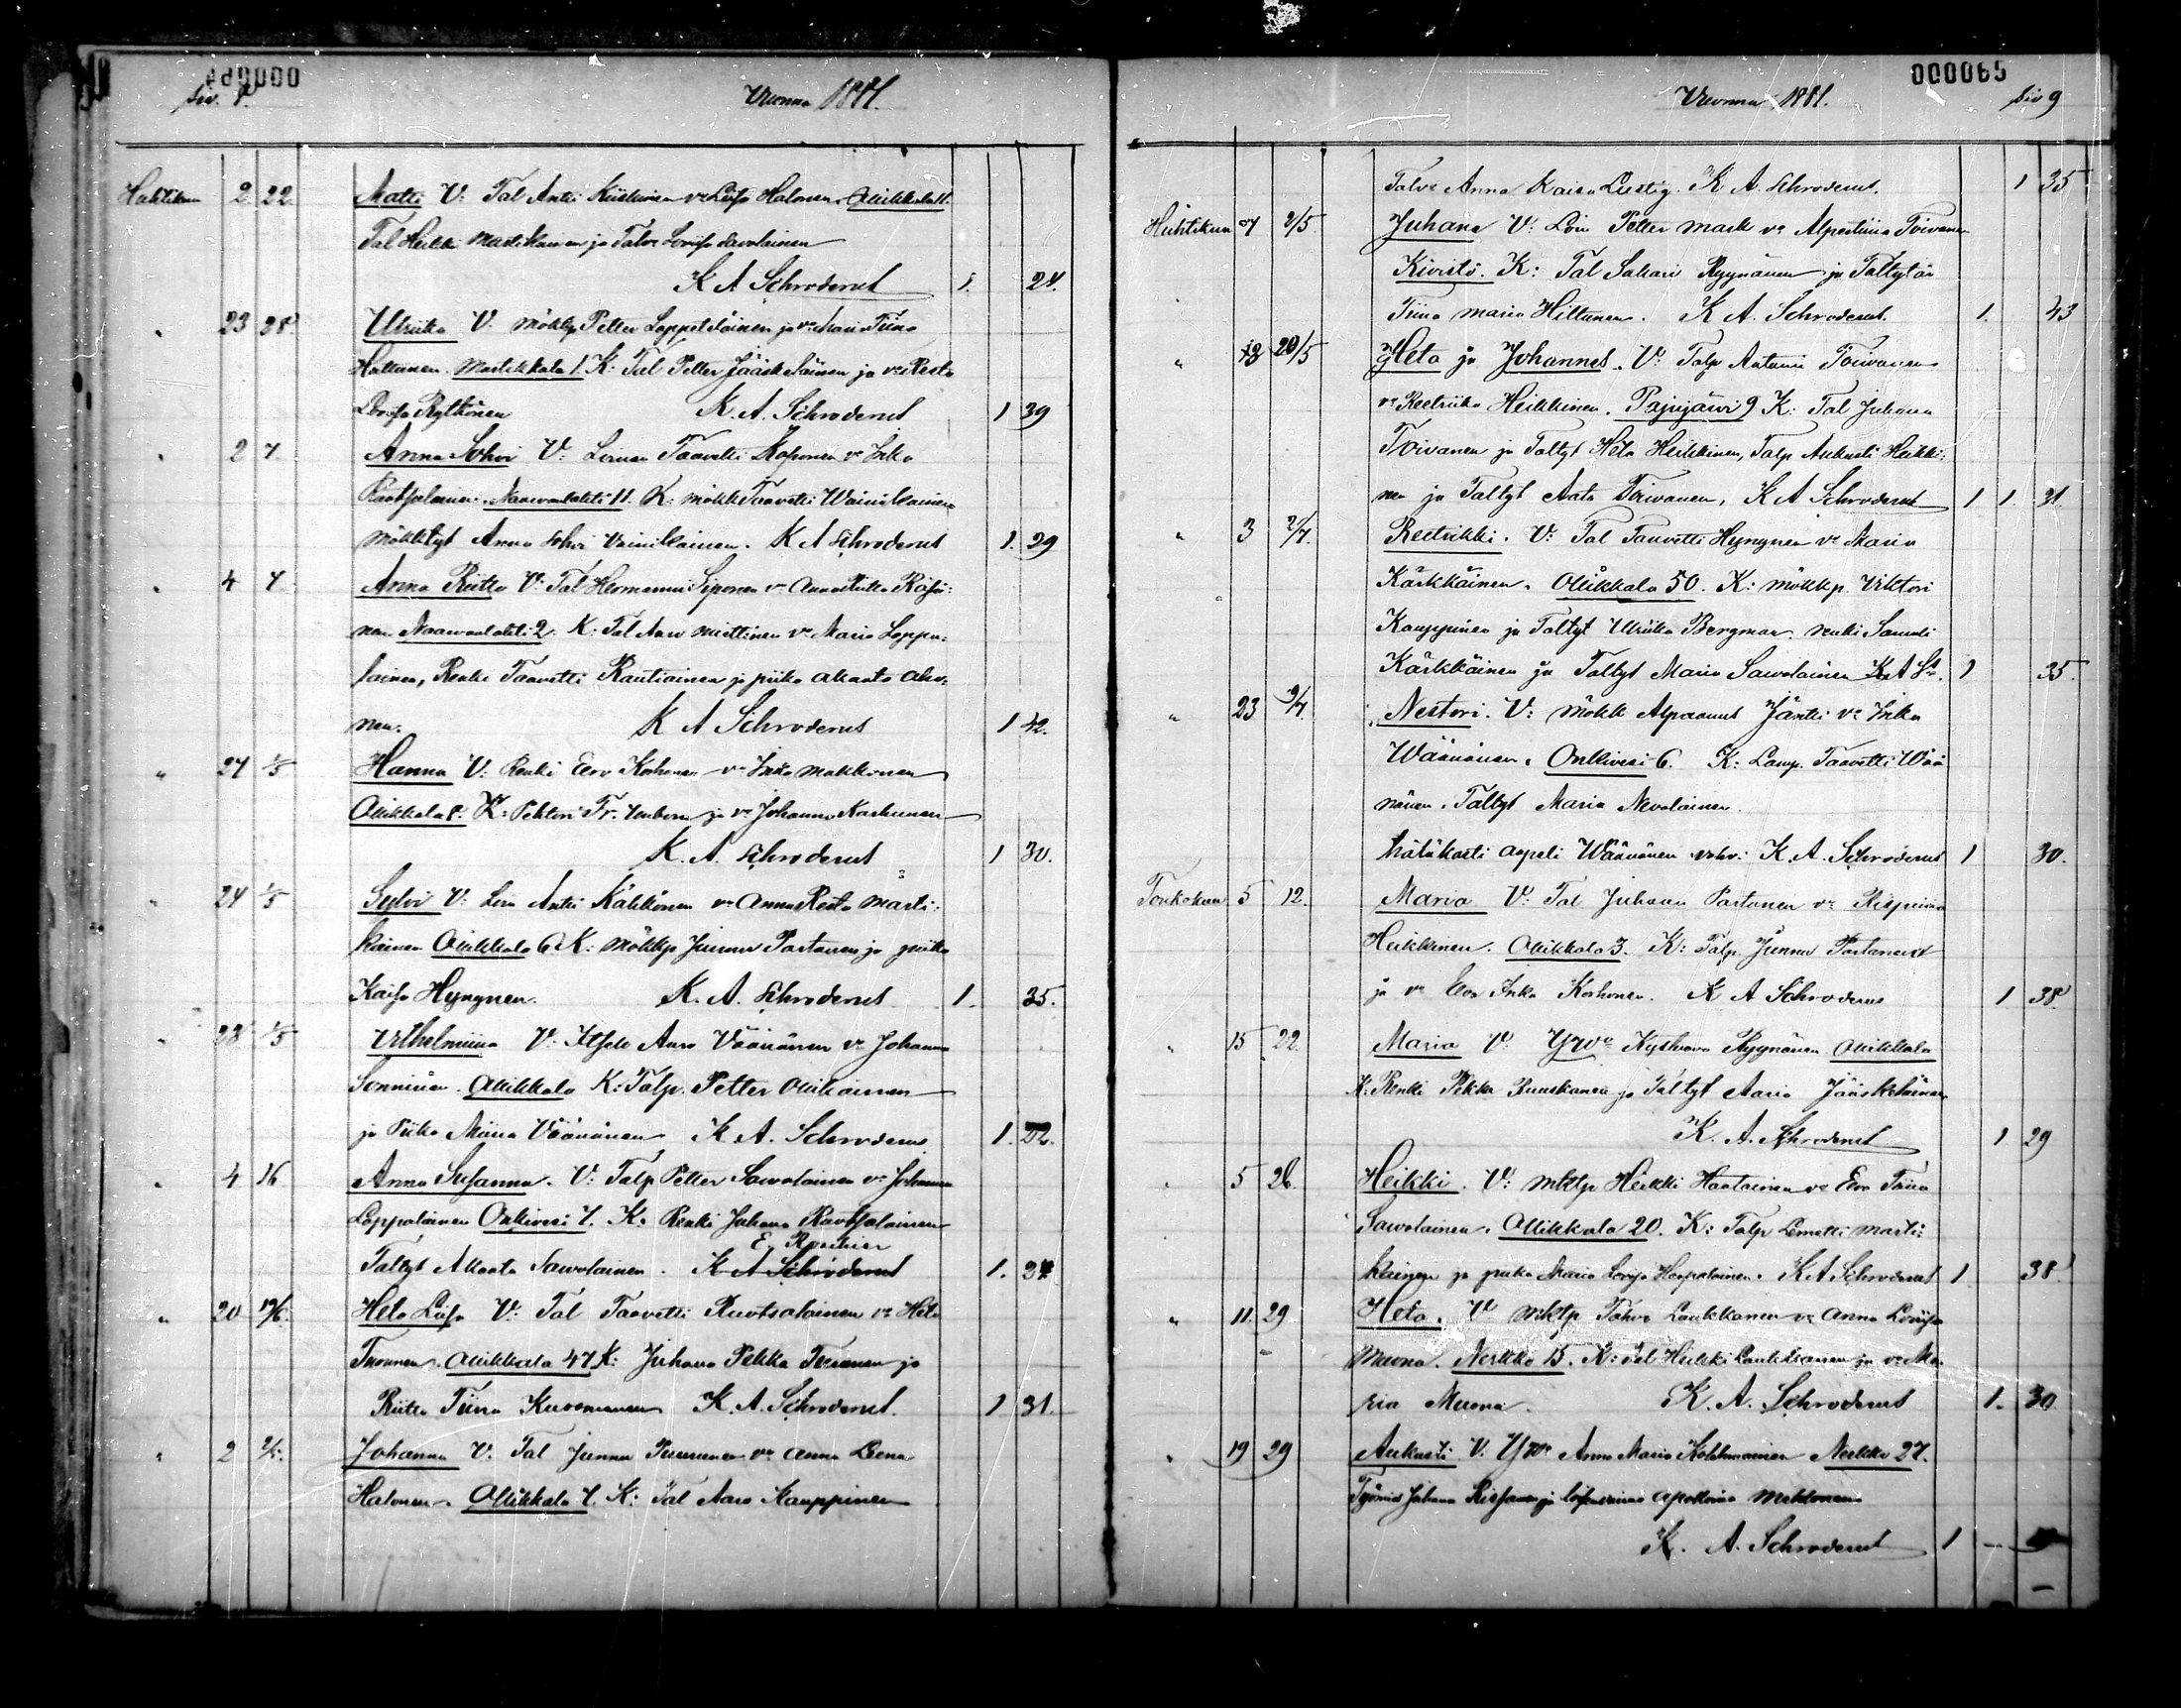 Siv. 8.
Vuonna 1881.
Huhtikuu 2 22 Matti V: Tal Antti Kiiskinen v: Liisa Halonen. Ollikkala 11.
Tal Heikki Martikainen ja Talv: Loviisa Savolainen
K A Schroderus 1. 24.
" 23 28 Ulriika V. Mökkp Petter Lappeteläinen ja v: Maria Tiina
Hattunen. Martikkala 1. K: Tal Petter Jääskeläinen ja v: Reeta
Lovisa Rytkönen K. A. Schroderus 1 39
" 2 7 Anna Sohvi V: Taavetti Koponen v: Inka
Ruotsalainen. Naarvanlahti 11. K: mökk Taavetti Wäinikainen
mökktyt Anna Sohvi Vainikainen. K A Schroderus 1. 29
" 4 7 Anna Riitta V: Tal Hermanni Siponen v: Anna Riitta Räsä:
nen Naarvanlahti 2. K: Tal Aaro Miettinen v: Maria Lappa:
lainen, Renki Taavetti Rautiainen ja piika
nen. K A Schroderus 1 42.
" 24 1/5 Hanna V: Renki Eero Korhonen v: Inka Makkonen
Ollikkala 8. K: ja v: Johanna Kaskunen
K. A. Schroderus 1 30.
" 24 1/5 V: Antti Kähkönen v: Anna Reeta Marti:
kainen Ollikkala 6 K: Mökkp Junnu Partanen ja piika
Kaisa Hyvynen. K. A. Schroderus 1. 35.
" 28 1/5 Vilhelmiina V: Itsell Aaro Väänänen v: Johanna
Sonninen. Ollikkala K: Talp. Petter Ollikainen
ja Piika Maria Väänänen K. A. Schroderus 1. 22.
" 4 16 Anna Susanna. V: Talp Petter Sawolainen v: Johanna
Lappalainen Onkivesi 7. K: Renki Juhana Ruotsalainen
Taltyt Akaata Sawolainen. K A Schroderus 1. 34
" 20 19/6 Heta Liisa V: Tal Taavetti Ruotsalainen v: Heta
Tuonnen. Ollikkala 47 K: Juhana Pekka ja
Riitta Tiina Kuosmanen K. A. Schroderus. 1 31.
" 2 Johanna V. Tal Junnu v: Anna Leena
Halonen. Ollikkala 7. K: Tal Aaro Kauppinen
000065
Vuonna 1881. Siv 9
Talv: Anna Kaisa Lustig. K. A. Schroderus. 1 35
Huhtikuu 2/5 Juhana V: Petter Mark v: Alpertiina Toivanen
Kivistö. K: Tal Sakari Ryynänen ja Taltytär
Tiina Maria Hiltunen. K A. Schroderus. 1. 43
" 20/5 Heta ja Johannes. V: Talp Antonni Toivanen
v: Reetriika Heikkinen. Pajujärvi 9 K: Tal Juhana
Toivanen ja Taltyt Heta Heikkinen, Talp Aukusti Heikki:
nen ja Taltyt Aata Toivanen, K A Schroderus 1 1. 31.
" 3 2/7. Reetrikki. V: Tal Taavetti Hyvynen v: Maria
Kärkkäinen. Ollikkala 50. K: mökkp. Viktori
Kauppinen ja Taltyt Ulriika Bergman, renki Samuli
Kärkkäinen ja Taltyt Maria Sawolainen K A S. 1 35.
" 23 Nestori. V: Mökk Jäntti v: Inka
Wäänänen. Onkivesi 6. K: Lamp. Taavetti Wää
nänen. Taltyt Maria Nevalainen.
hätäkasti Wäänänen vahv: K. A. Schroderus 1 30.
Toukokuu 5 12. Maria V: Tal Juhana Partanen v: Reginna
Heikkinen. Ollikkala 3. K: Talp. Junnu Partanen
ja v: Eva Inka Korhonen. K A Schroderus 1 38
" 15 22 Maria V: Yv: Ryynänen Ollikkala
K: Renki Pekka Ruuskanen ja Taltyt Maria Jääskeläinen
K. A. Schroderus 1 29
" 5 26. Heikki. V: mktp Heikki Haatainen v: Eva Tiina
Sawolainen. Ollikkala 20. K: Talp Lemetti Marti:
kainen ja piika Maria Lovisa Haapalainen. K A Schroderus 1 38
" 11. 29 Heta. V: Mktp Tahvo Laukkanen v: Anna Loviisa
Muona. Nerkko 15. K: Tal Heikki Laukkanen ja v: Ma
ria Muona. K. A. Schroderus 1. 30
" 19 29 Aukusti V. Anna Maria Kolehmainen Nerkko 27.
Työmies Juhana ja Apollonia Makkonen
K. A. Schroderus 1 —